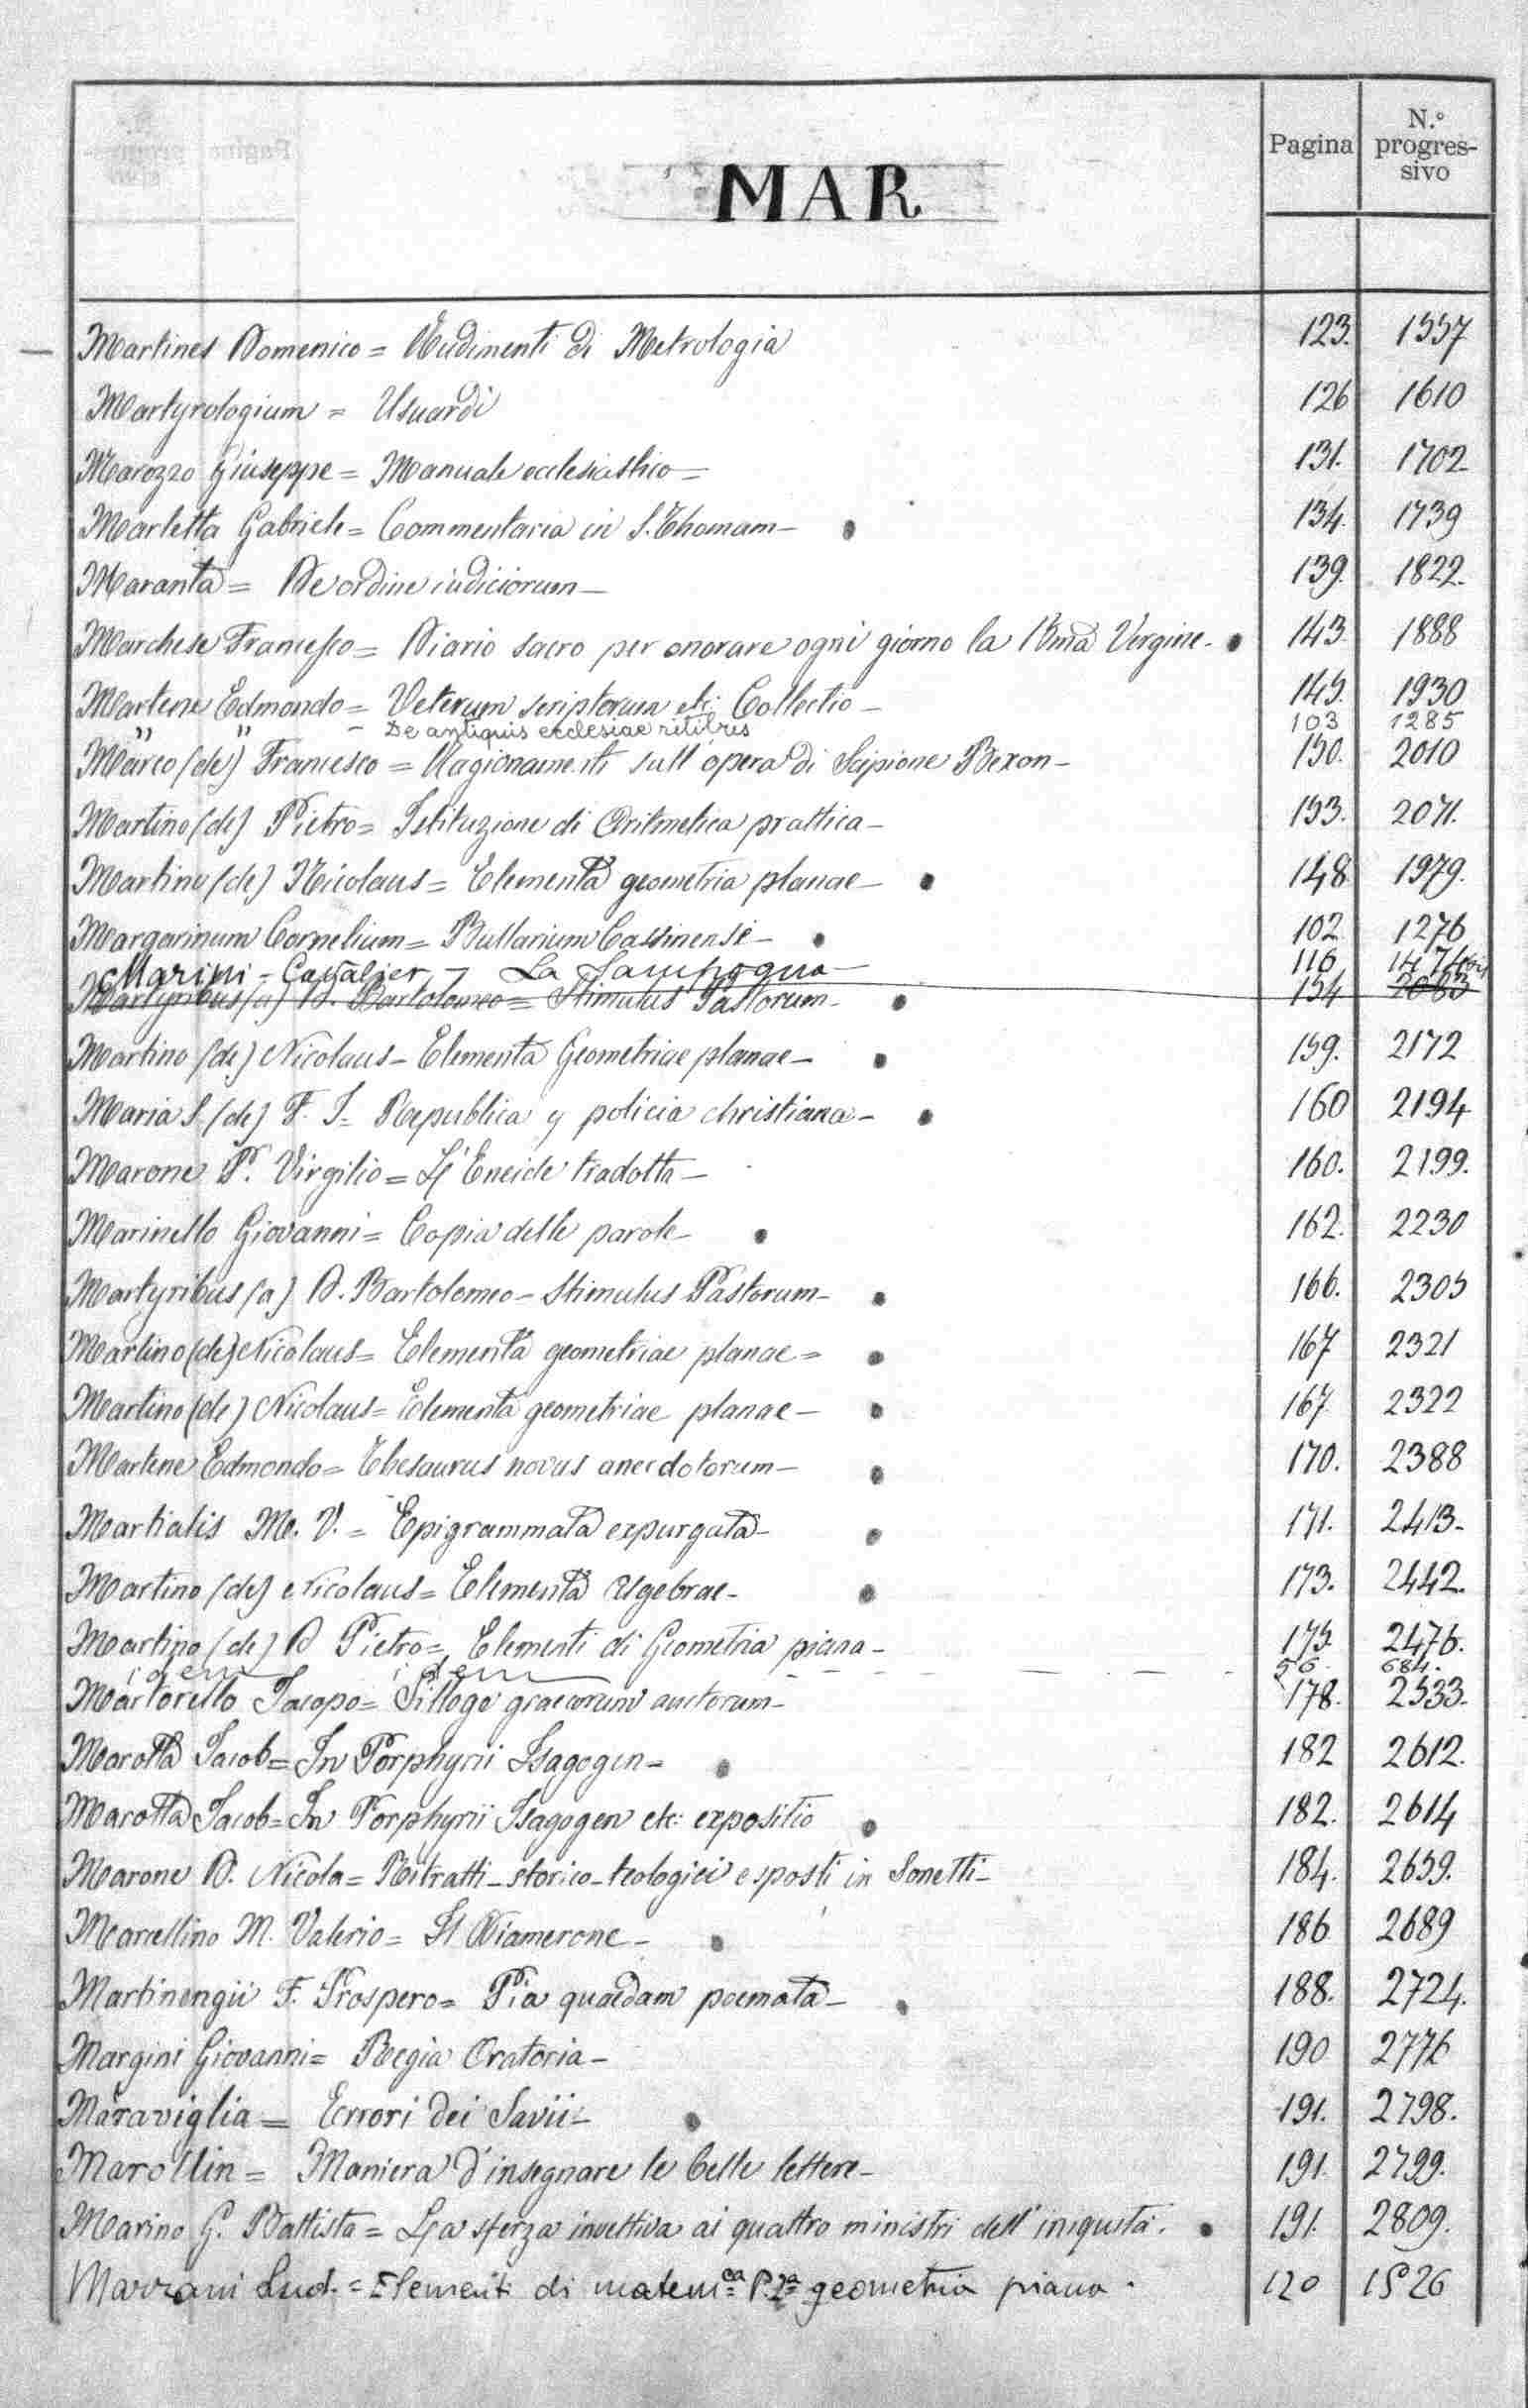 Pagina N.º progres-sivo
MAR
Martines Domenico = Rudimenti di Metrologia 123. 1557
Martyrologium = Usuardi 126 1610
Marozzo Giuseppe = Manuale ecclesiastico — 131. 1702
Marletta Gabriele = Commentaria in S. Thomam — 134. 1739
Maranta = De ordine iudiciorum — 139. 1822.
Marchese Francesco = Diario sacro per onorare ogni giorno la Bma Vergine. 143. 1888
Martene Edmondo = Veterum scriptorum etc: Collectio — 145. 1930
" " — De antiquis ecclesiae ritibus 103 1285
Marco (de) Francesco = Ragionamenti sull'opera di Scipione Bexon — 150. 2010
Martino (de) Pietro = Istituzione di Aritmetica prattica — 153. 2071.
Martino (de) Nicolaus = Elementa geometria planae — 148 1979.
Margarinum Cornelium = Bullarium Cassinense — 102 1276
Marini - Cavalier - La Sampogna — 116 147
Martyribus (a) D. Bartolomeo = Stimulus Pastorum — 154 2083
Martino (de) Nicolaus - Elementa Geometriae planae — 159. 2172
Maria S. (de) F. I = Republica y policia christiana — 160 2194
Marone P. Virgilio = L'Eneide tradotta — 160. 2199.
Marinello Giovanni = Copia delle parole — 162. 2230
Martyribus (a) D. Bartolomeo — Stimulus Pastorum — 166. 2305
Martino (de) Nicolaus = Elementa geometriae planae = 167 2321
Martino (de) Nicolaus = Elementa geometriae planae — 167 2322
Martene Edmondo = Thesaurus novus anecdotorum — 170. 2388
Martialis M. V. = Epigrammata expurgata — 171. 2413-
Martino (de) Nicolaus = Elementa Algebrae — 173. 2442.
Martino (de) D Pietro = Elementi di Geometria piana — 175. 2476.
idem idem 56. 684.
Martorello Jacopo = Silloge graecorum auctorum — 178. 2533.
Marotta Jacob = In Porphyrii Isagogen — 182 2612.
Marotta Jacob = In Porphyrii Isagogen etc: expositio 182. 2614
Marone D. Nicola = Ritratti — storico — teologici esposti in Sonetti — 184. 2659.
Marcellino M. Valerio = Il Diamerone — 186 2689
Martinengii F. Prospero = Pia quaedam poemata — 188. 2724.
Margini Giovanni = Regia Oratoria — 190 2776
Maraviglia = Errori dei Savii — 191. 2798.
Marollin = Maniera d'insegnare le belle lettere — 191. 2799.
Marino G. Battista = La sferza invettiva ai quattro ministri dell'iniquità. 191. 2809.
Marzani Lud. = Elementi di matemca P. 2a geometria piana. 120 1526